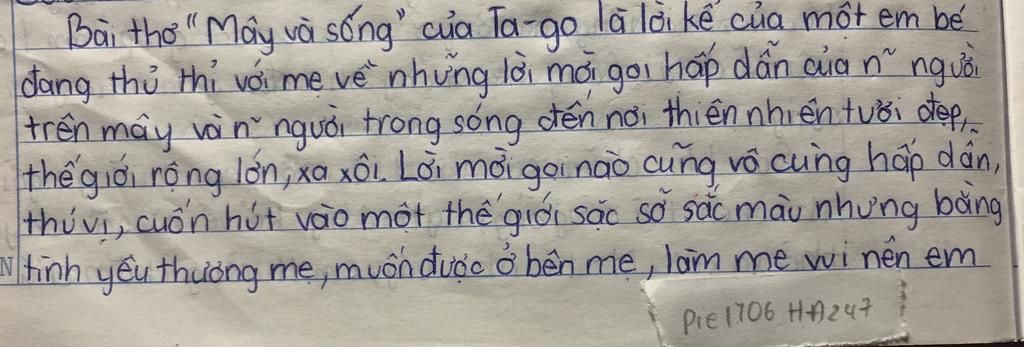 Bài thơ "Mây và sóng" của Ta-go là lời kể của một em bé
đang thủ thỉ với mẹ về những lời mời gọi hấp dẫn của n~ người
trên mây và n~ người trong sóng đến nơi thiên nhiên tươi đẹp,
thế giới rộng lớn, xa xôi. Lời mời gọi nào cũng vô cùng hấp dẫn,
thú vị, cuốn hút vào một thế giới sặc sỡ sắc màu nhưng bằng
N tình yêu thương mẹ, muốn được ở bên mẹ, làm mẹ vui nên em
Pie1706 HA247